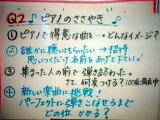 Q2 ♪ ピアノのささやき ♪
① ピアノで得意な曲…どんなイメージ?
② 誰かに聴いてもらいたい→招待
思いつくだけ名前をあげて下さい♪
③ 集まった人の前で弾き終わった。
さて、何点つける? 100点満点中
④ 新しい楽曲に挑戦!
パーフェクトに弾きこなせるまで
どの位 かかる?